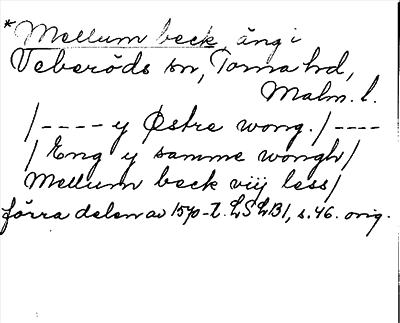 *Mellum beck, äng i
Veberöds sn, Torna hd,
Malm. l.
/---- y Østre wong. /----
/ Eng y samme wongh/
Mellum beck viij less/
förra delen av 1570-t. LSLB1, s. 46. orig.